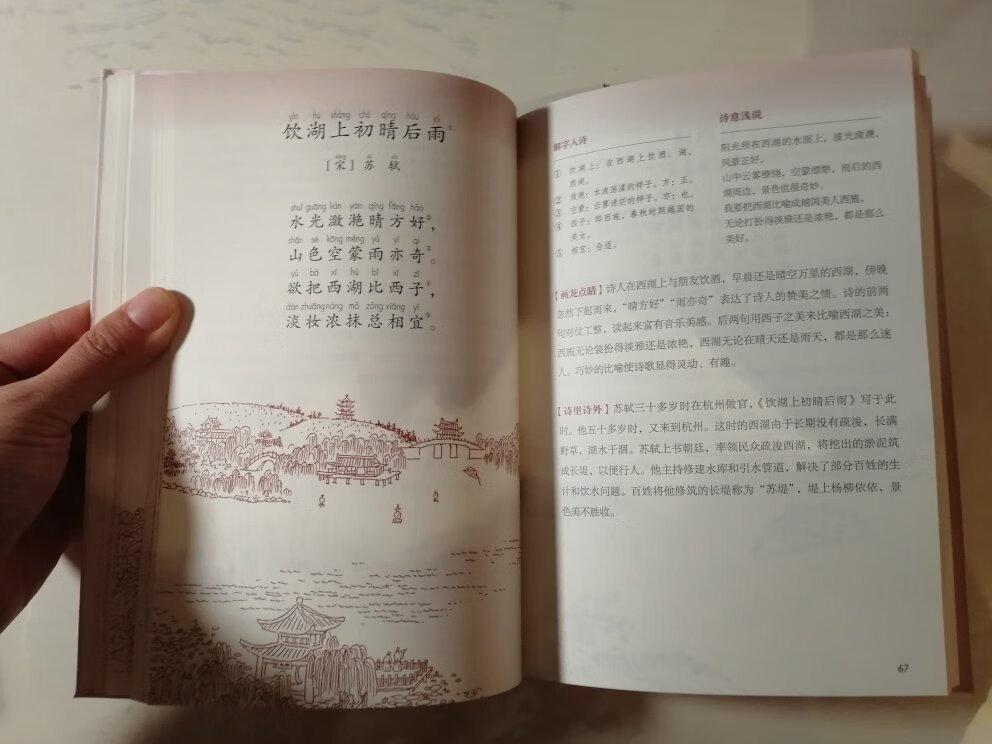 yǐn hú shàng chū qíng hòu yǔ
饮湖上初晴后雨①
sòng sū shì
[宋] 苏 轼
shuǐ guāng liàn yàn qíng fāng hǎo
水光潋滟晴方好②,
shān sè kōng méng yǔ yì qí
山色空蒙雨亦奇③。
yù bǎ xī hú bǐ xī zǐ
欲把西湖比西子④,
dàn zhuāng nóng mǒ zǒng xiāng yí
淡妆浓抹总相宜⑤。
解字入诗
① 饮湖上:在西湖上饮酒。湖,
西湖。
② 潋滟:水波荡漾的样子。方:正。
③ 空蒙:云雾迷茫的样子。亦:也。
④ 西子:即西施,春秋时期越国的
美女。
⑤ 相宜:合适。
诗意浅说
阳光照在西湖的水面上,波光潋滟,
风景正好。
山中云雾缭绕,空蒙缥缈,雨后的西
湖周边,景色也很奇妙。
我要把西湖比喻成越国美人西施,
无论打扮得淡雅还是浓艳,都是那么
美好。
【画龙点睛】诗人在西湖上与朋友饮酒,早晨还是晴空万里的西湖,傍晚
忽然下起雨来,“晴方好”“雨亦奇”表达了诗人的赞美之情。诗的前两
句对仗工整,读起来富有音乐美感。后两句用西子之美来比喻西湖之美:
西施无论装扮得淡雅还是浓艳,西湖无论在晴天还是雨天,都是那么迷
人。巧妙的比喻使诗歌显得灵动、有趣。
【诗里诗外】苏轼三十多岁时在杭州做官,《饮湖上初晴后雨》写于此
时。他五十多岁时,又来到杭州。这时的西湖由于长期没有疏浚,长满
野草,湖水干涸。苏轼上书朝廷,率领民众疏浚西湖,将挖出的淤泥筑
成长堤,以便行人。他主持修建水库和引水管道,解决了部分百姓的生
计和饮水问题。百姓将他修筑的长堤称为“苏堤”,堤上杨柳依依,景
色美不胜收。
67